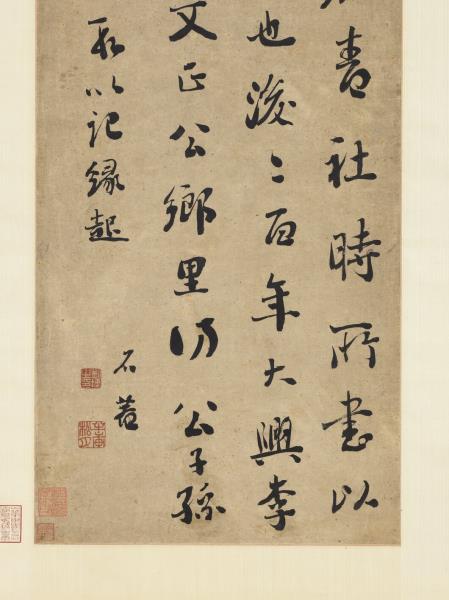 青社時所書以
也後〻百年大興李
文正公鄉里仍公子孫
以記緣起
石菴